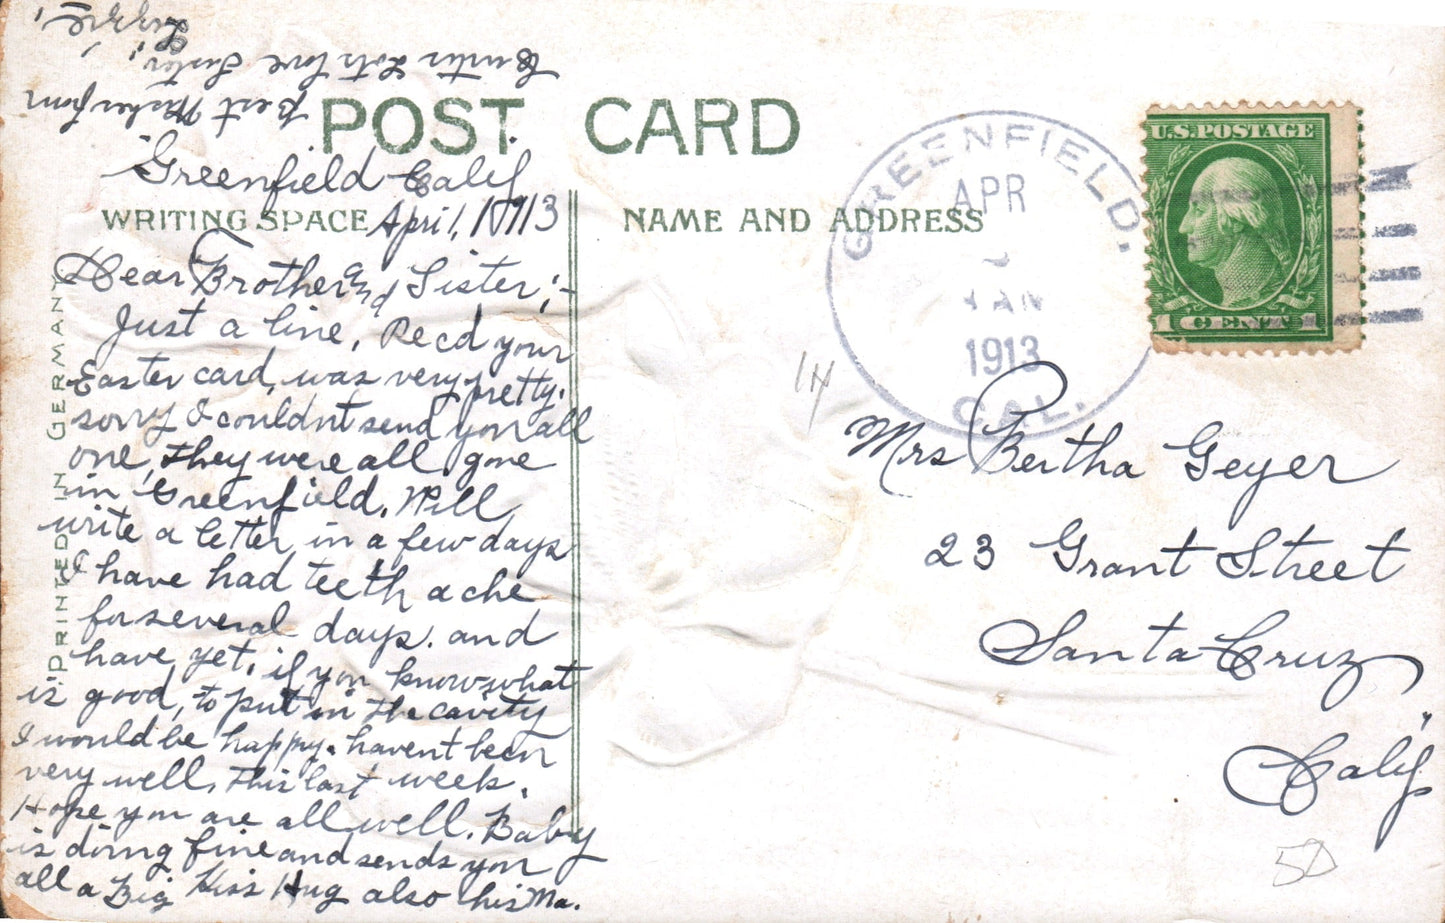 POST CARD
Greenfield Calif
WRITING SPACE
April, 1 1913
Dear Brother and Sister;-
Just a line, Recd your
Easter card, was very pretty.
sorry I couldnt send you all
one, they were all gone
in Greenfield. Will
write a letter in a few days
I have had teeth ache
for several days. and
have yet, if you know what
is good, to put in the cavity
I would be happy. havent been
very well, this last week.
Hope you are all well. Baby
is doing fine and sends you
all a Big Kiss Hug also his Ma.
Best Wishes from
Lots love Sister
Lizzie
PRINTED IN GERMANY
NAME AND ADDRESS
GREENFIELD,
APR
1913
CAL.
U.S. POSTAGE
1 CENT 1
14
Mrs Bertha Geyer
23 Grant Street
Santa Cruz
Calif
50